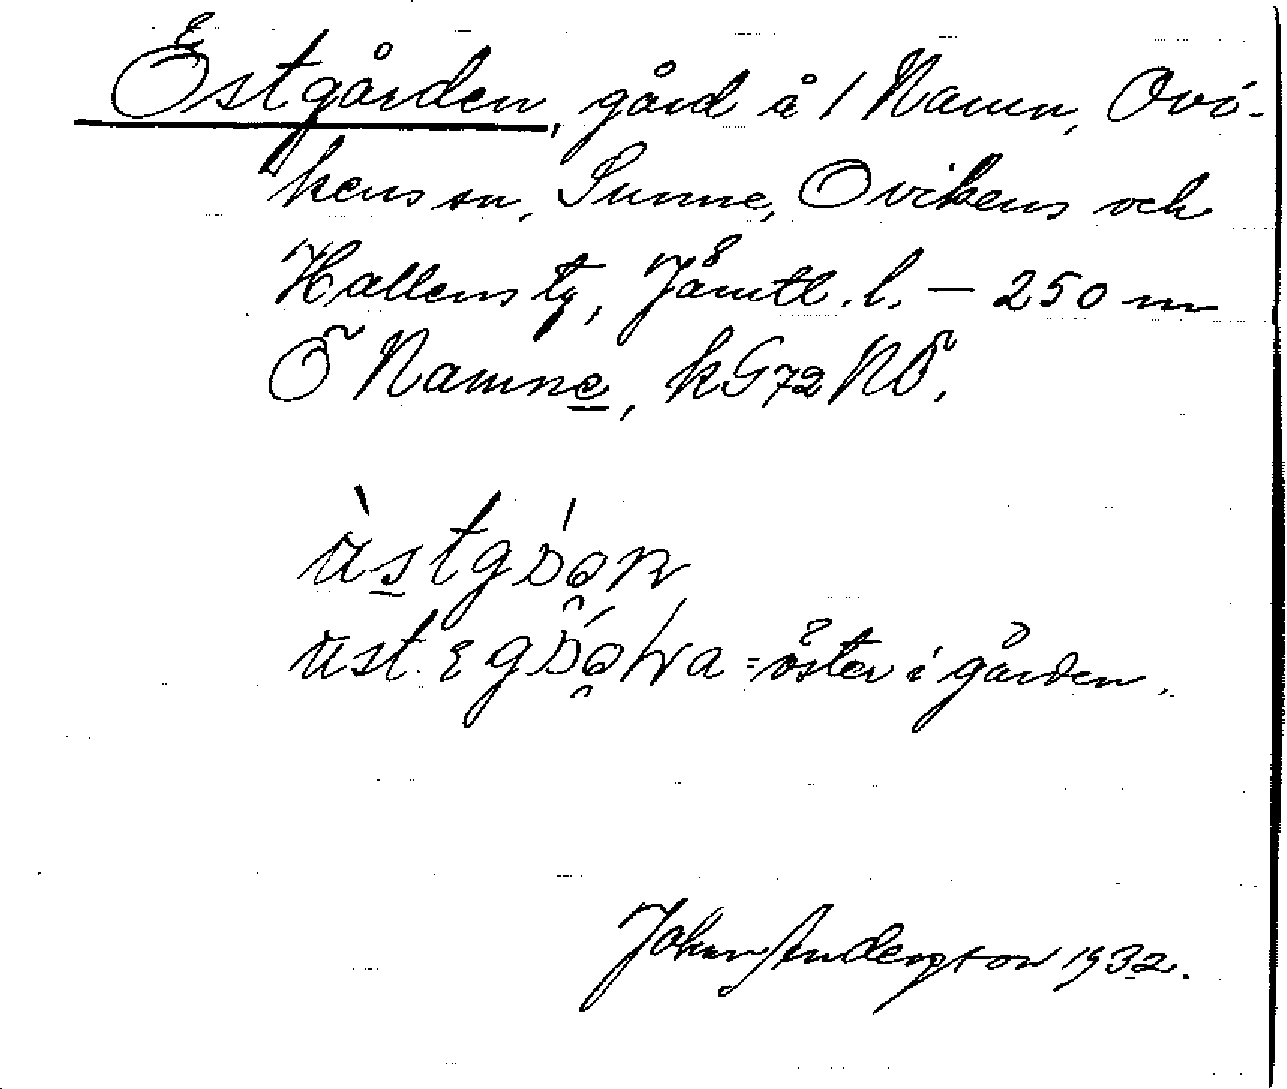 Östgården, gård å 1 Namn, Ovi-
kens sn, Sunne, Ovikens och
Hallens tg, Jämtl. l. – 250 m
Ö Namne, kG72NÖ.
= öster i gården.
Johan Anderzson 1932.